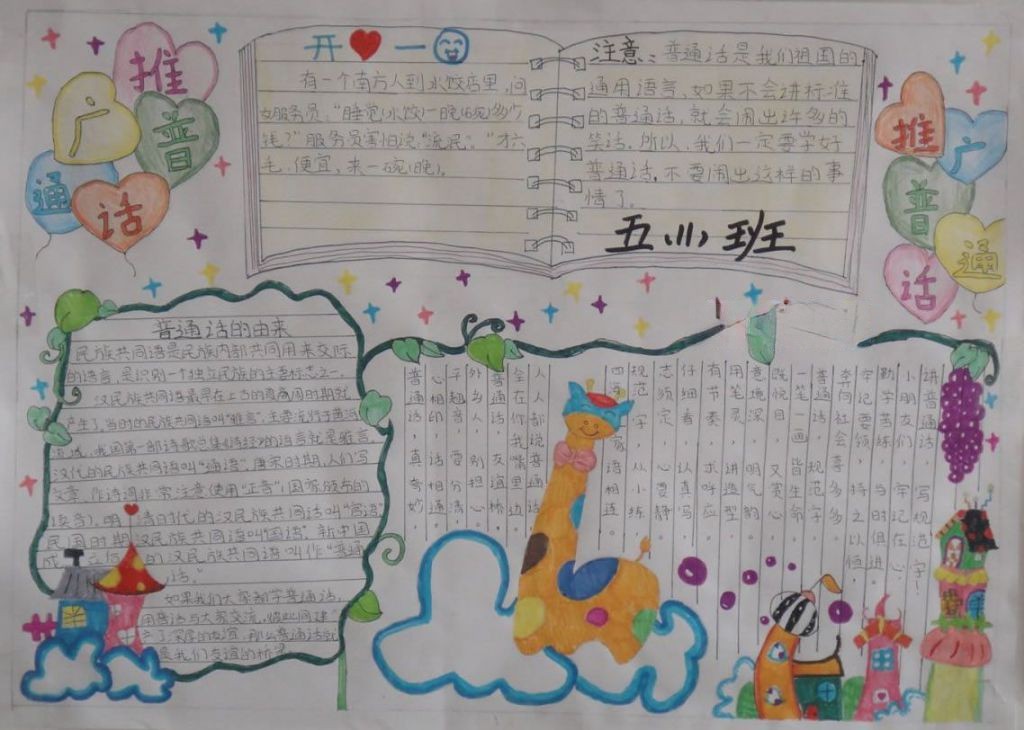 推
广
普
通
话
开 一
有一个南方人到水饺店里,问
女服务员:"睡觉(水饺)一晚(碗)多少
钱?"服务员害怕说"流氓。""才六
毛,便宜,来一碗(晚)。
注意:普通话是我们祖国的
通用语言,如果不会讲标准
的普通话,就会闹出许多的
笑话,所以,我们一定要学好
普通话,不要闹出这样的事
情了。
五(1)班
推
广
普
通
话
普通话的由来
民族共同语是民族内部共同用来交际
的语言,是识别一个独立民族的主要标志之一。
汉民族共同语最早在上古的夏商周时期就
产生了,当时的民族共同语叫"雅言",主要流行于黄河
流域,我国第一部诗歌总集《诗经》的语言就是雅言,
汉代的民族共同语叫"通语",唐宋时期,人们写
文章、作诗词非常注意使用"正音"(国家颁布的
读音),明、清时代的汉民族共同语叫"官话"
民国时期汉民族共同语叫"国语",新中国
的汉民族共同语叫作"普通
话。"
如果我们大家都学普通话,
用普通话与大家交流,
那么普通话就
是我们友谊的桥梁
讲普通话,写规范字!
小朋友们,牢记在心。
勤学苦练,与时俱进。
牢记要领,持之以恒。
奔向社会喜多多。
普通话,规范字,
一笔一画皆生命。
既悦目,又赏心,
意境深,明气韵。
用笔灵,讲造型,
有节奏,求呼应。
仔细看,认真写,
志须定,心要静,
规范字,从小练。
人人都说普通话,
全在你我嘴里边。
普通话,友谊桥,
外乡人,别担心,
乎翘音,要分清,
心相印,话相通,
普通话,真奇妙。